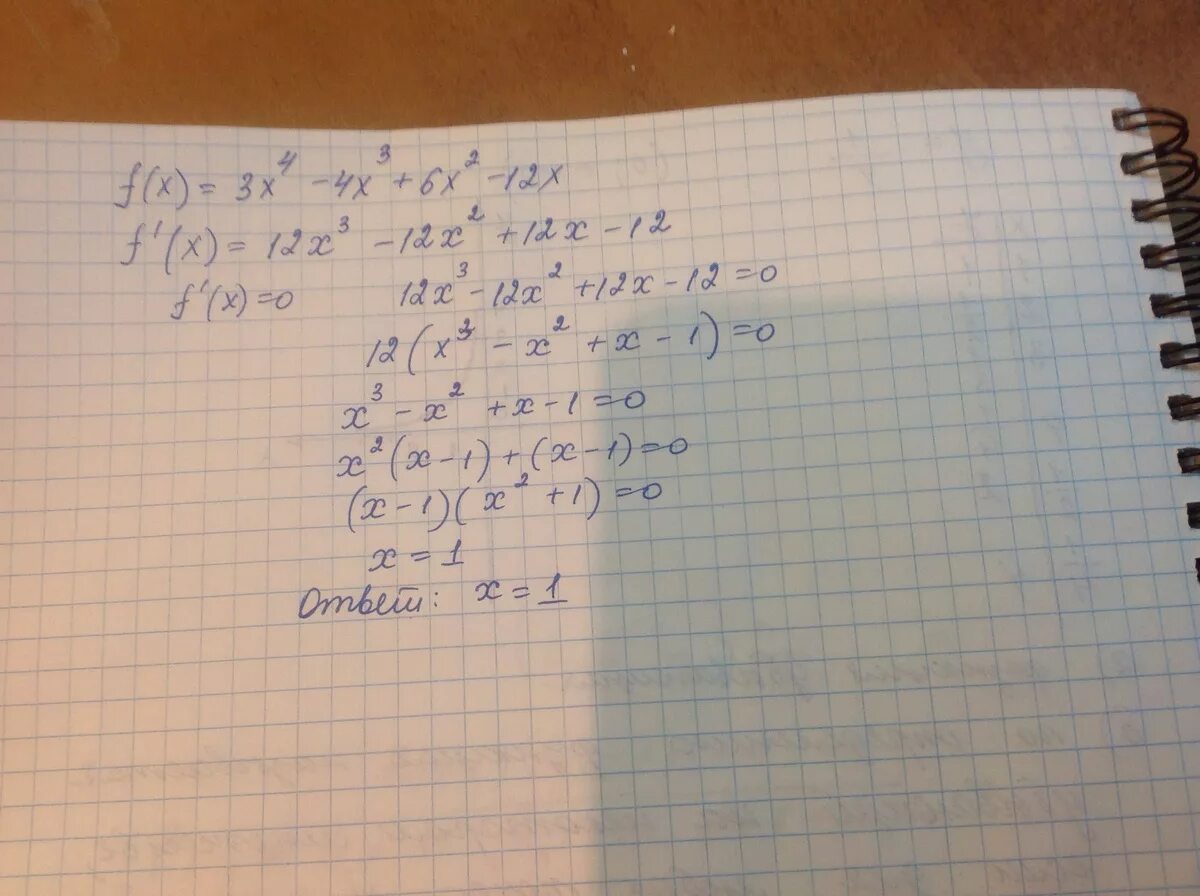 f(x) = 3x⁴ - 4x³ + 6x² - 12x
f'(x) = 12x³ - 12x² + 12x - 12
f'(x) = 0 12x³ - 12x² + 12x - 12 = 0
12(x³ - x² + x - 1) = 0
x³ - x² + x - 1 = 0
x²(x - 1) + (x - 1) = 0
(x - 1)(x² + 1) = 0
x = 1
Ответ: x = 1